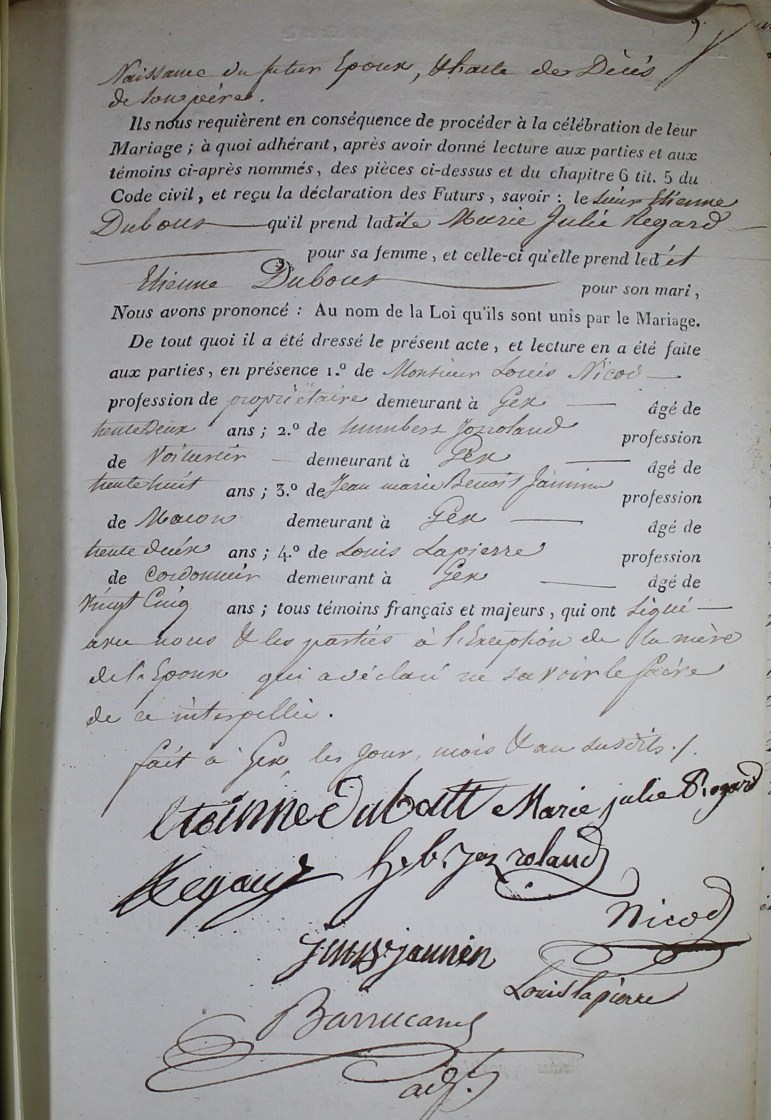 Naissance du futur Epoux, & l'acte de Décès
de son père.
Ils nous requièrent en conséquence de procéder à la célébration de leur
Mariage ; à quoi adhérant, après avoir donné lecture aux parties et aux
témoins ci-après nommés, des pièces ci-dessus et du chapitre 6 tit. 5 du
Code civil, et reçu la déclaration des Futurs, savoir : le sieur Etienne
Dubout qu'il prend ladite Marie Julie Regard
pour sa femme, et celle-ci qu'elle prend led et
Etienne Dubout pour son mari,
Nous avons prononcé : Au nom de la Loi qu'ils sont unis par le Mariage.
De tout quoi il a été dressé le présent acte, et lecture en a été faite
aux parties, en présence 1.º de Monsieur Louis Nicod
profession de propriétaire demeurant à Gex âgé de
trente deux ans ; 2.º de humbert Jozroland profession
de Voiturier demeurant à Gex âgé de
trente huit ans ; 3.º de Jean marie Benoit Jannin profession
de Macon demeurant à Gex âgé de
trente deux ans ; 4.º de Louis Lapierre profession
de Cordonnier demeurant à Gex âgé de
Vingt Cinq ans ; tous témoins français et majeurs, qui ont signé
avec nous & les parties à l'Exception de la mère
de l'Epoux qui a déclaré ne savoir le faire
de ce interpellée.
fait à Gex, les jour, mois & an susdits ./.
etoinne Dubout Marie julie Regard
Regard hb. joz roland
Nicod
jmB jannin
Louis lapierre
Barrucand
adj.t